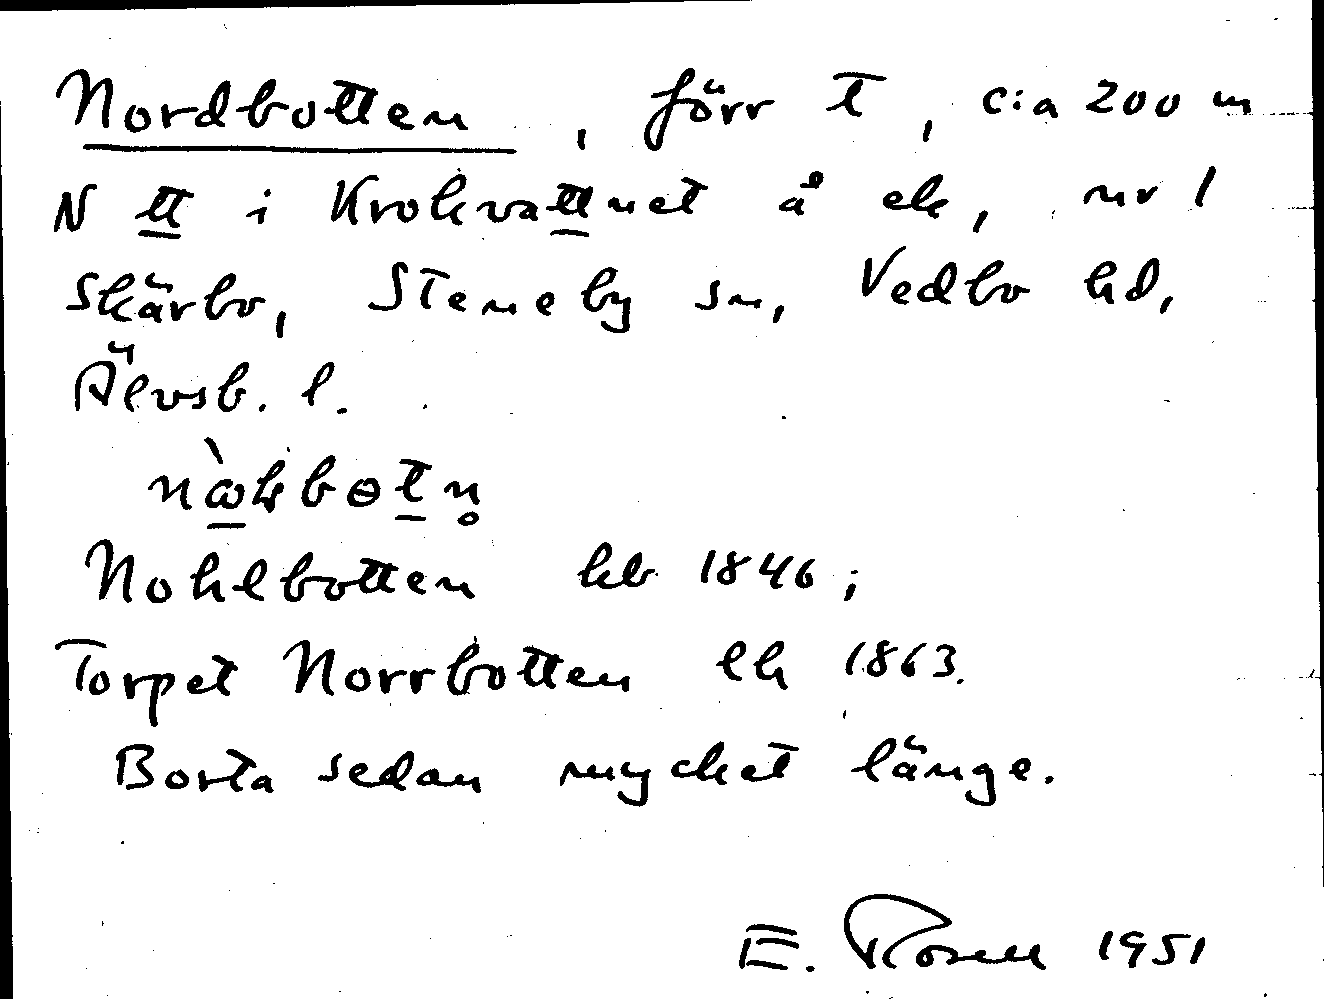 Nordbotten, förr t, c:a 200 m
N tt i Krokvattnet å ek, nr 1
Skärbo, Steneby sn, Vedbo hd,
Älvsb. l.
Nohlbotten hb 1846;
Torpet Norrbotten lh 1863.
Borta sedan mycket länge.
E. Rosell 1951